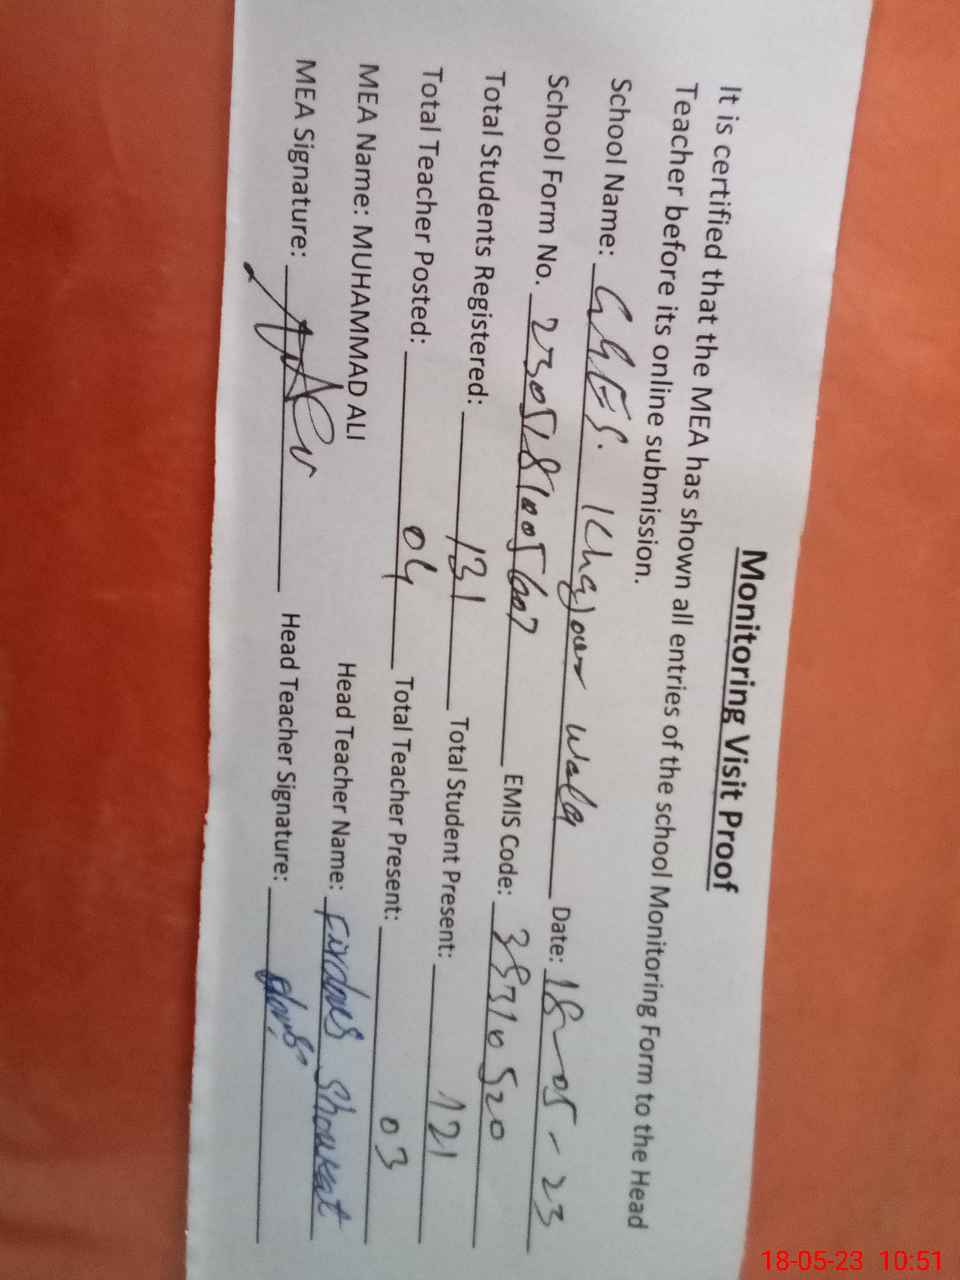 Monitoring Visit Proof
It is certified that the MEA has shown all entries of the school Monitoring Form to the Head
Teacher before its online submission.
School Name: GGES. Khajour Wala Date: 18-05-23
School Form No. 2305181005607 EMIS Code: 38310520
Total Students Registered: 131 Total Student Present: 121
Total Teacher Posted: 04 Total Teacher Present: 03
MEA Name: MUHAMMAD ALI Head Teacher Name: Firdous Shoukat
MEA Signature: Head Teacher Signature:
18-05-23 10:51